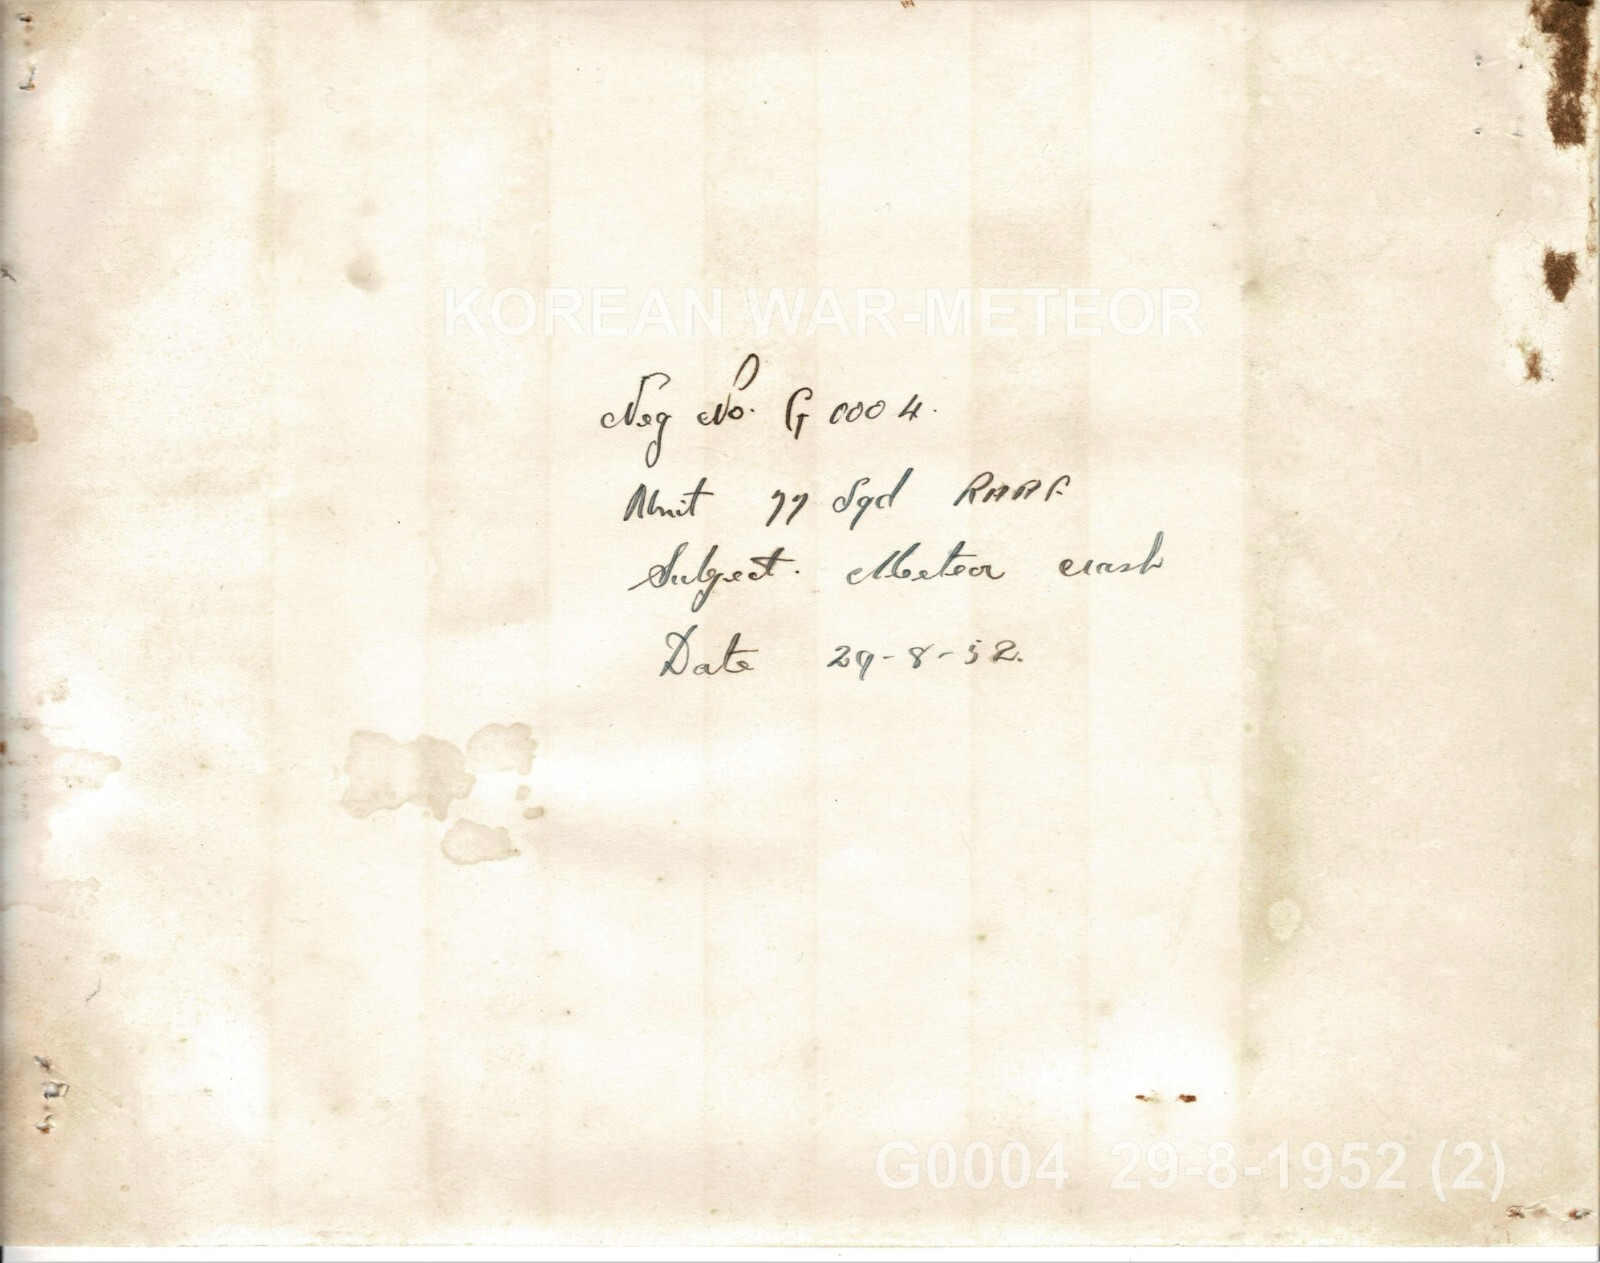 KOREAN WAR-METEOR
Neg No. G 0004.
Unit 77 Sqd RAAF.
Subject. Meteor crash
Date 29-8-52.
G0004 29-8-1952 (2)